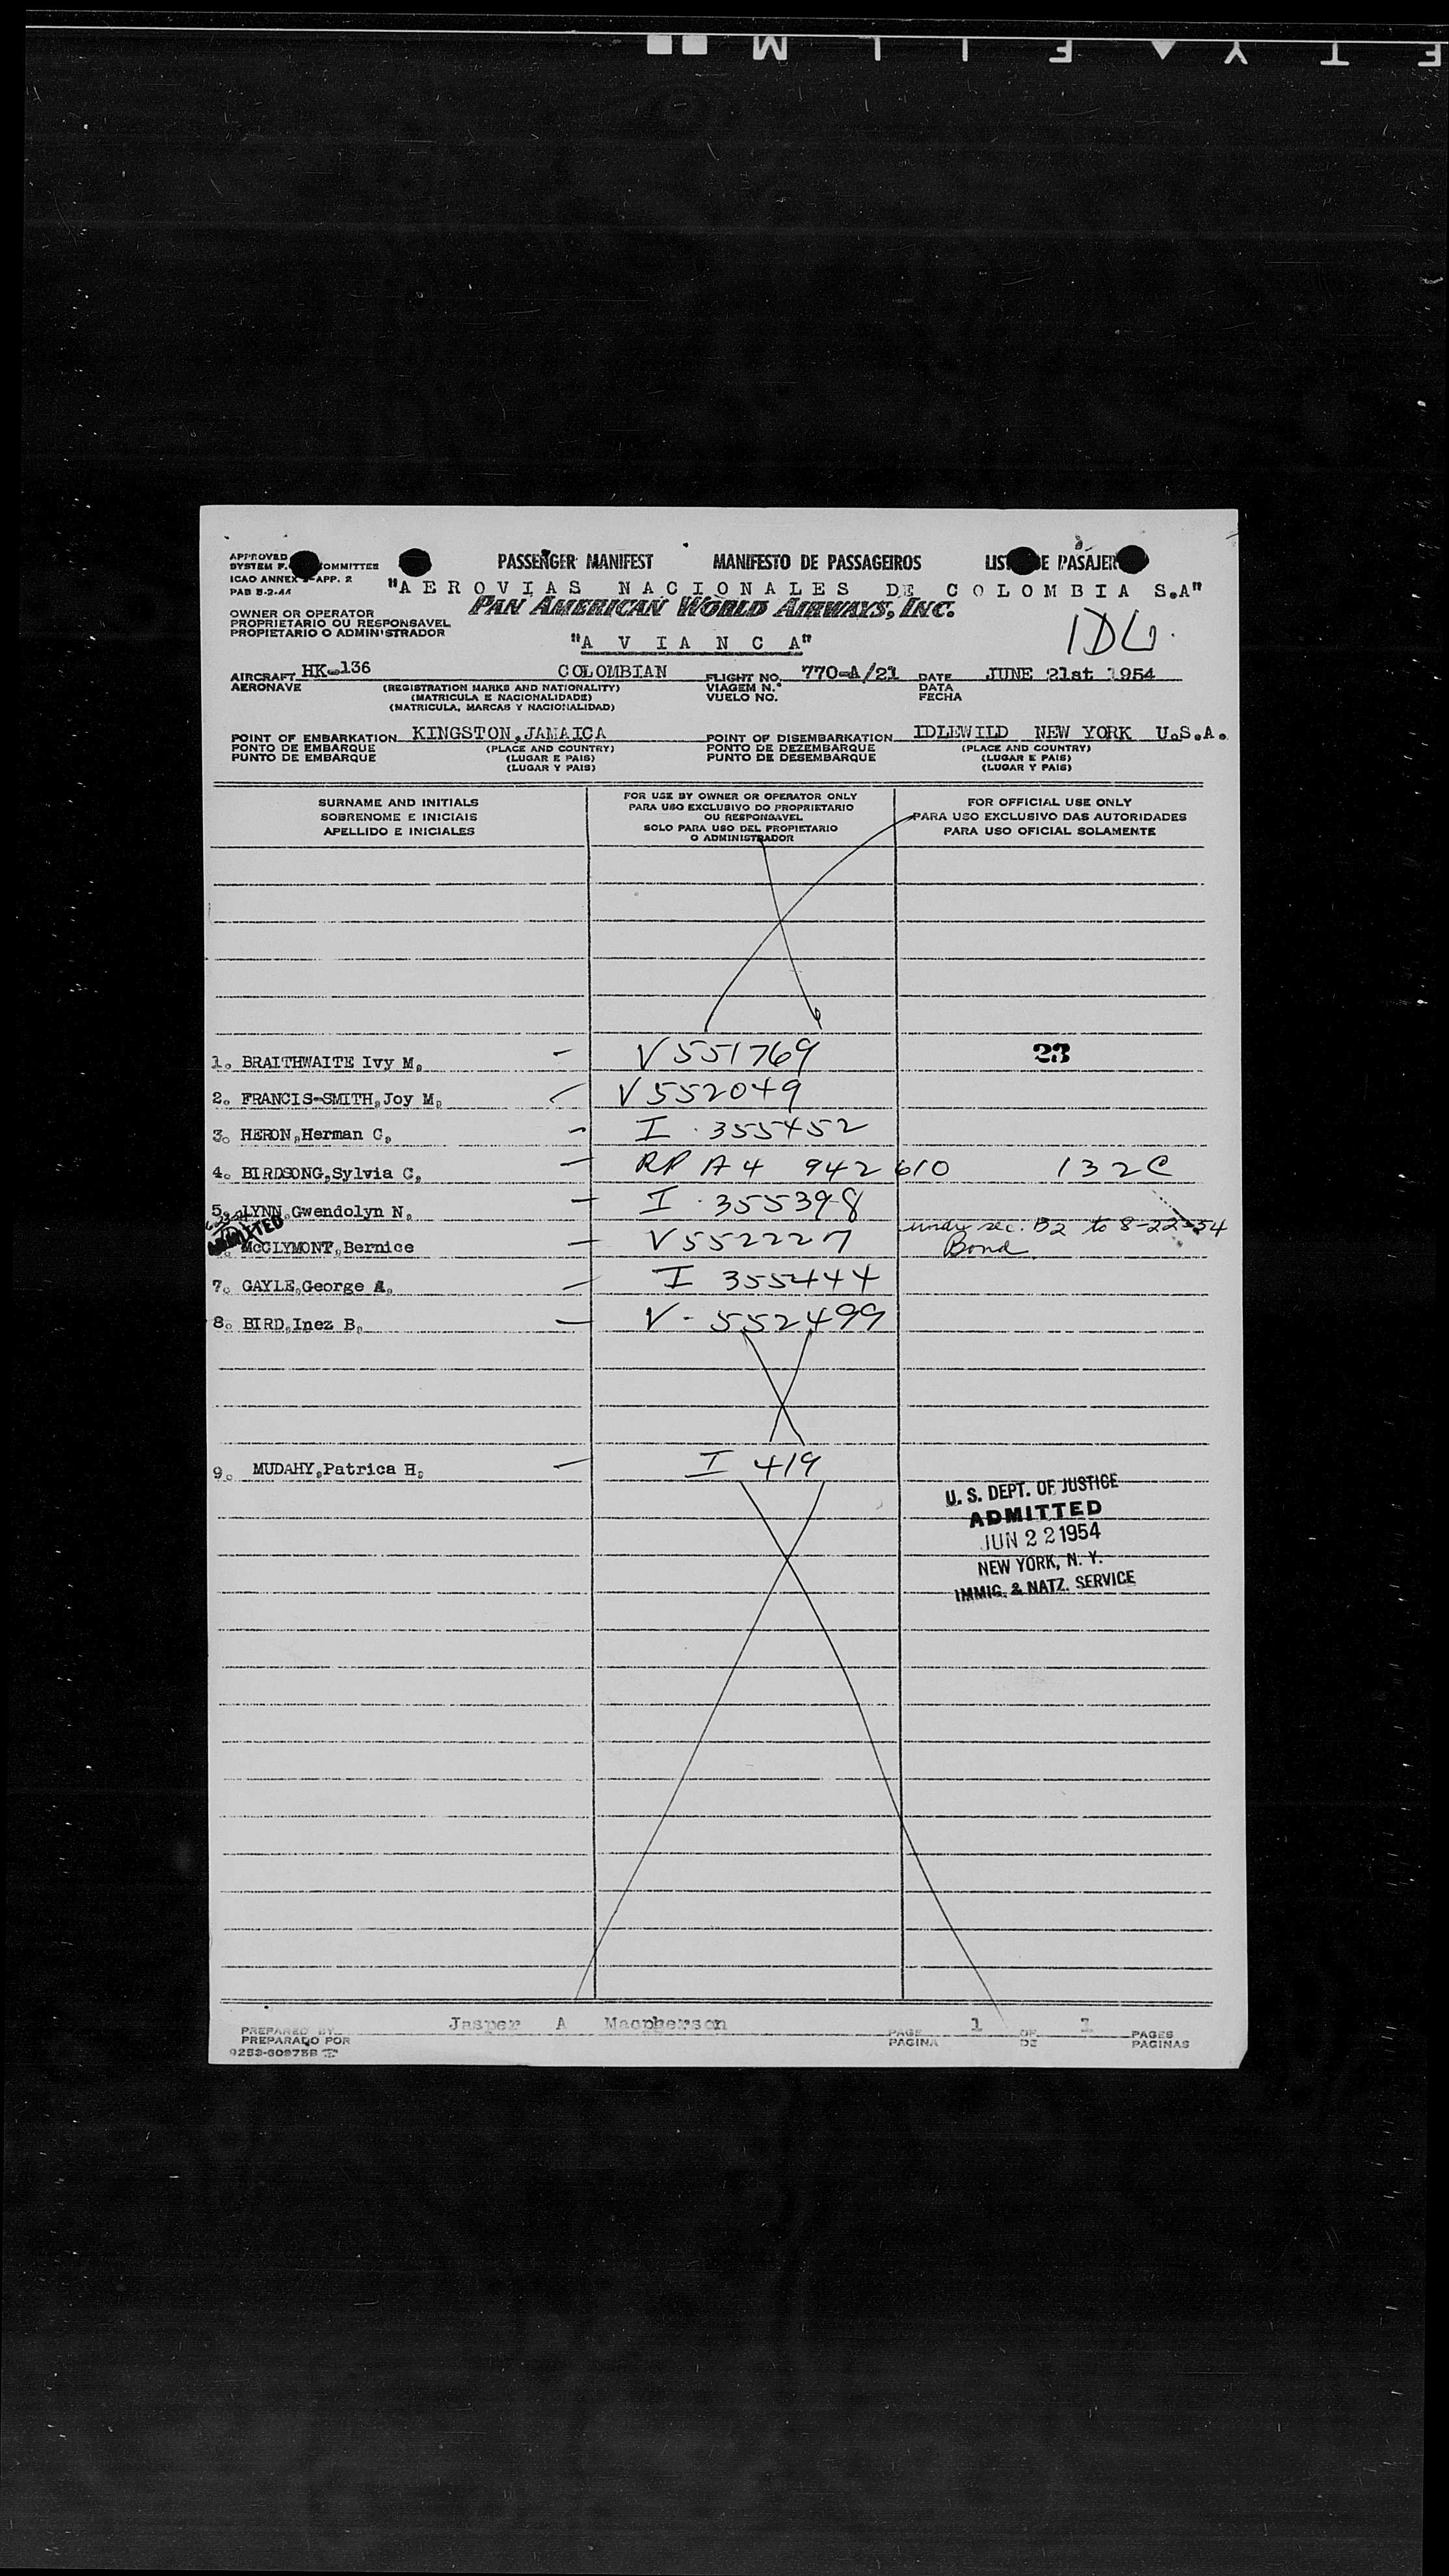 E T Y F I L M
APPROVED
SYSTEM F. OMMITTEE
ICAO ANNEX APP. 2
PAB 5-2-44
PASSENGER MANIFEST MANIFESTO DE PASSAGEIROS LIS E PASAJER
"AEROVIAS NACIONALES DE COLOMBIA S.A"
PAN AMERICAN WORLD AIRWAYS, INC.
OWNER OR OPERATOR
PROPRIETARIO OU RESPONSAVEL
PROPIETARIO O ADMINISTRADOR
"A V I A N C A"
AIRCRAFT HK-136 COLOMBIAN FLIGHT NO. 770-A/21 DATE JUNE 21st 1954
AERONAVE (REGISTRATION MARKS AND NATIONALITY) VIAGEM N.° DATA
(MATRICULA E NACIONALIDADE) VUELO NO. FECHA
(MATRICULA, MARCAS Y NACIONALIDAD)
POINT OF EMBARKATION KINGSTON,JAMAICA POINT OF DISEMBARKATION IDLEWILD NEW YORK U.S.A.
PONTO DE EMBARQUE (PLACE AND COUNTRY) PONTO DE DEZEMBARQUE (PLACE AND COUNTRY)
PUNTO DE EMBARQUE (LUGAR E PAIS) PUNTO DE DESEMBARQUE (LUGAR E PAIS)
(LUGAR Y PAIS) (LUGAR Y PAIS)
SURNAME AND INITIALS
SOBRENOME E INICIAIS
APELLIDO E INICIALES
FOR USE BY OWNER OR OPERATOR ONLY
PARA USO EXCLUSIVO DO PROPRIETARIO
OU RESPONSAVEL
SOLO PARA USO DEL PROPIETARIO
O ADMINISTRADOR
FOR OFFICIAL USE ONLY
PARA USO EXCLUSIVO DAS AUTORIDADES
PARA USO OFICIAL SOLAMENTE
1. BRAITHWAITE Ivy M. - V551769 23
2. FRANCIS-SMITH,Joy M. - V552049
3. HERON,Herman C. - I 355452
4. BIRDSONG,Sylvia C. - RP A4 942 610 132C
5. LYNN,Gwendolyn N. - I 355398
ADMITTED
under sec. B2 to 8-22-54
McCLYMONT,Bernice - V552227 Bond
7. GAYLE,George A. - I 355444
8. BIRD,Inez B. - V-552499
9. MUDAHY,Patrica H. - I 419
U. S. DEPT. OF JUSTICE
ADMITTED
JUN 22 1954
NEW YORK, N. Y.
IMMIG. & NATZ. SERVICE
PREPARED BY Jasper A Macpherson PAGE 1 OF 1 PAGES
PREPARADO POR PAGINA DE PAGINAS